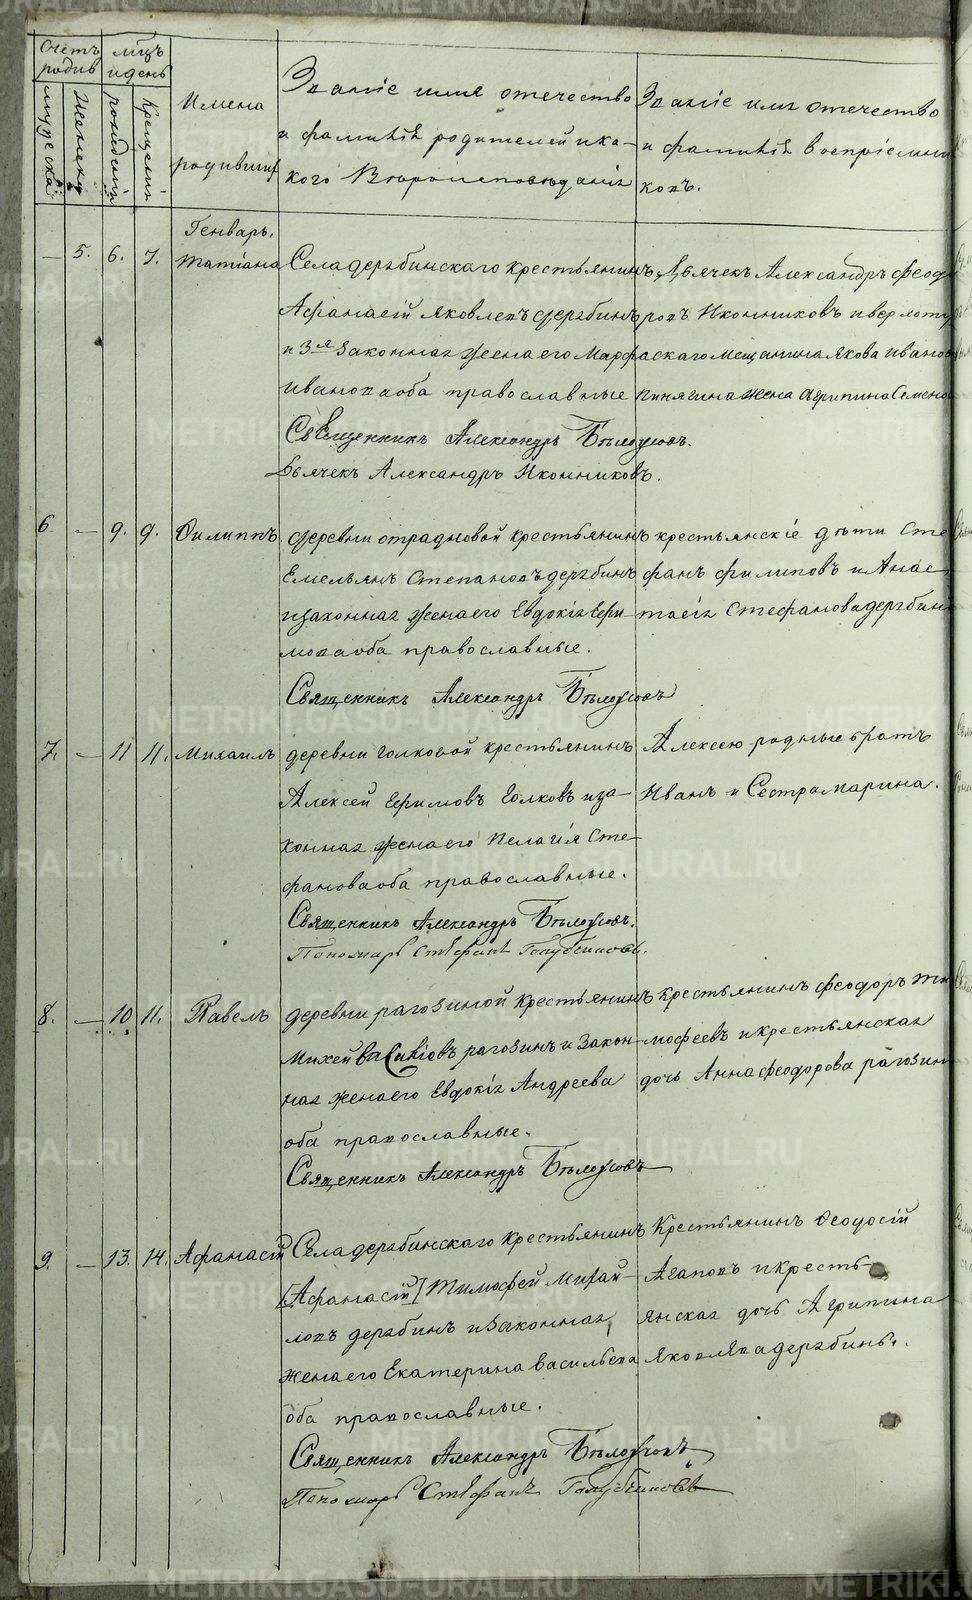 Счетъ родив
мужеска
Женска
мцъ и день
рожденія
Крещенія
Имена
родивших
Званіе имя отечество
и фамилія родителей и ка-
кого Вѣроисповѣданія
Званіе имя отечество
и фамилія воспріемни
ковъ.
Генварь.
— 5. 6. 7. Татіана
Села дерябинскаго крестьянинъ
Афанасій Яковлевъ дерябинъ
и 3я Законная жена его Марфа
Иванова оба православные
Священникъ Александръ Бѣлоусовъ.
Дьячекъ Александръ Иконниковъ.
Дьячекъ Александръ Феодо
ровъ Иконниковъ и верхоту
скаго мещанина Якова Иванов
пинягина жена Агрипина Семено
6. — 9. 9. Филиппъ.
деревни отрадновой крестьянинъ
Емельянъ Степановъ дерябинъ
и законная жена его Евдокія Ефи-
мова оба православные.
Священникъ Александръ Бѣлоусовъ
крестьянскіе дѣти Сте
фанъ филиповъ и Анас
тасія Стефанова дерябин
7. — 11 11. Михаилъ
деревни голковой крестьянинъ
Алексей Ефимовъ Голковъ и за-
конная жена его Пелагія Сте-
фанова оба православные.
Священникъ Александръ Бѣлоусовъ.
Пономарь Стефанъ Голубчиковъ.
Алексею родные братъ
Иванъ и Сестра марина.
8. — 10. 11. Павелъ
деревни рагозиной крестьянинъ
Михей Василіовъ рагозинъ и Закон-
ная жена его Евдокія Андреева
оба православные.
Священникъ Александръ Бѣлоусовъ
крестьянинъ феодоръ ти
мофеевъ и крестьянская
дочь Анна феодорова рагозин
9. — 13. 14. Афанасій
Села дерябинскаго крестьянинъ
[Афанасій] Тимофей Михай-
ловъ дерябинъ и Законная
жена его Екатерина васильева
оба православные.
Священникъ Александръ Бѣлоусовъ
Пономарь Стефанъ Голубчиковъ
Крестьянинъ Феодосій
Агаповъ и кресть-
янская дочь Агрипина
Яковлева дерябины.
METRIKI.GASO-URAL.RU